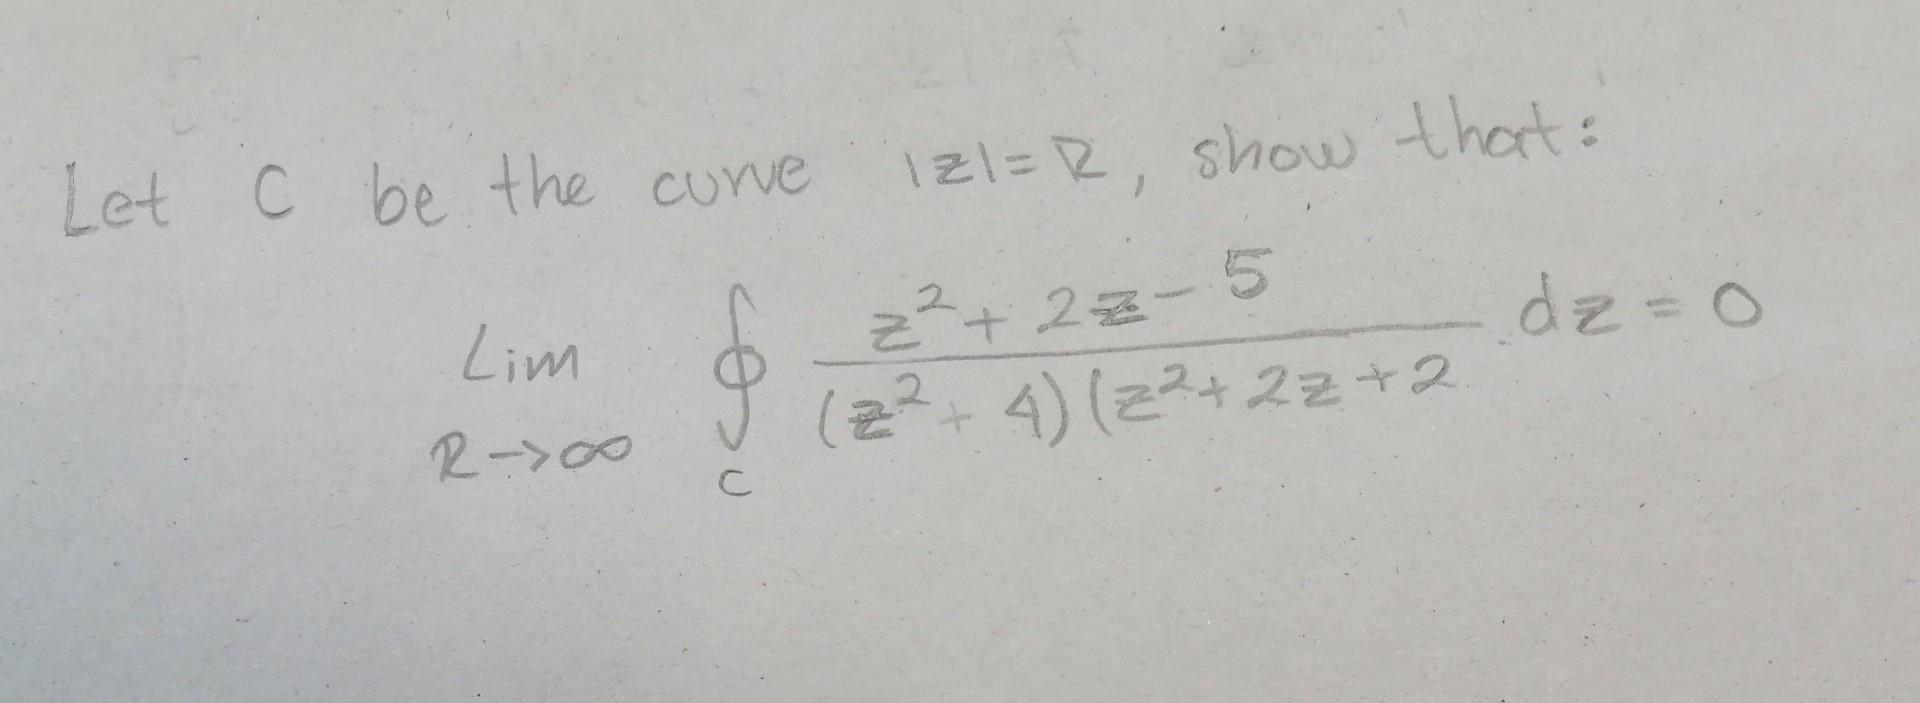 Let C be the curve |z|=R, show that:
Lim R→∞ ∮_C (z² + 2z - 5)/((z² + 4)(z² + 2z + 2) dz = 0